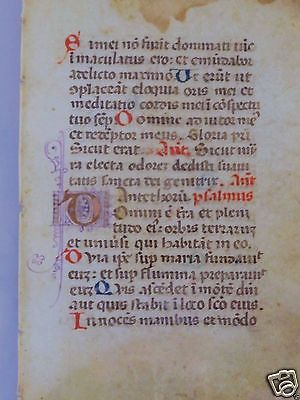 Si mei nō fuerīt dominati tūc
īmaculatus ero: et emūdabor
a delicto maximo. Et erūt ut
cōplaceāt eloquia oris mei et
meditatio cordis mei ī cōspectu
tuo sēp. Domine adiutor meᵒ
et redēptor meus. Gloria pri
Sicut erat. Añt. Sicut mir
ra electa odorē dedisti suaui
tatis sancta dei genitrix. Añt
Ante thorū. psalmus
Domini ē tr̄a et pleni
tudo eiᵒ: orbis terrarum
et uniūsi qui habitāt in eo.
Quia ipē sup maria fundauit
eum: et sup flumina preparauit
eum. Quis ascēdet ī mōtē dn̄i
aut quis stabit ī loco sc̄o eius.
Innocēs manibus et mōdo